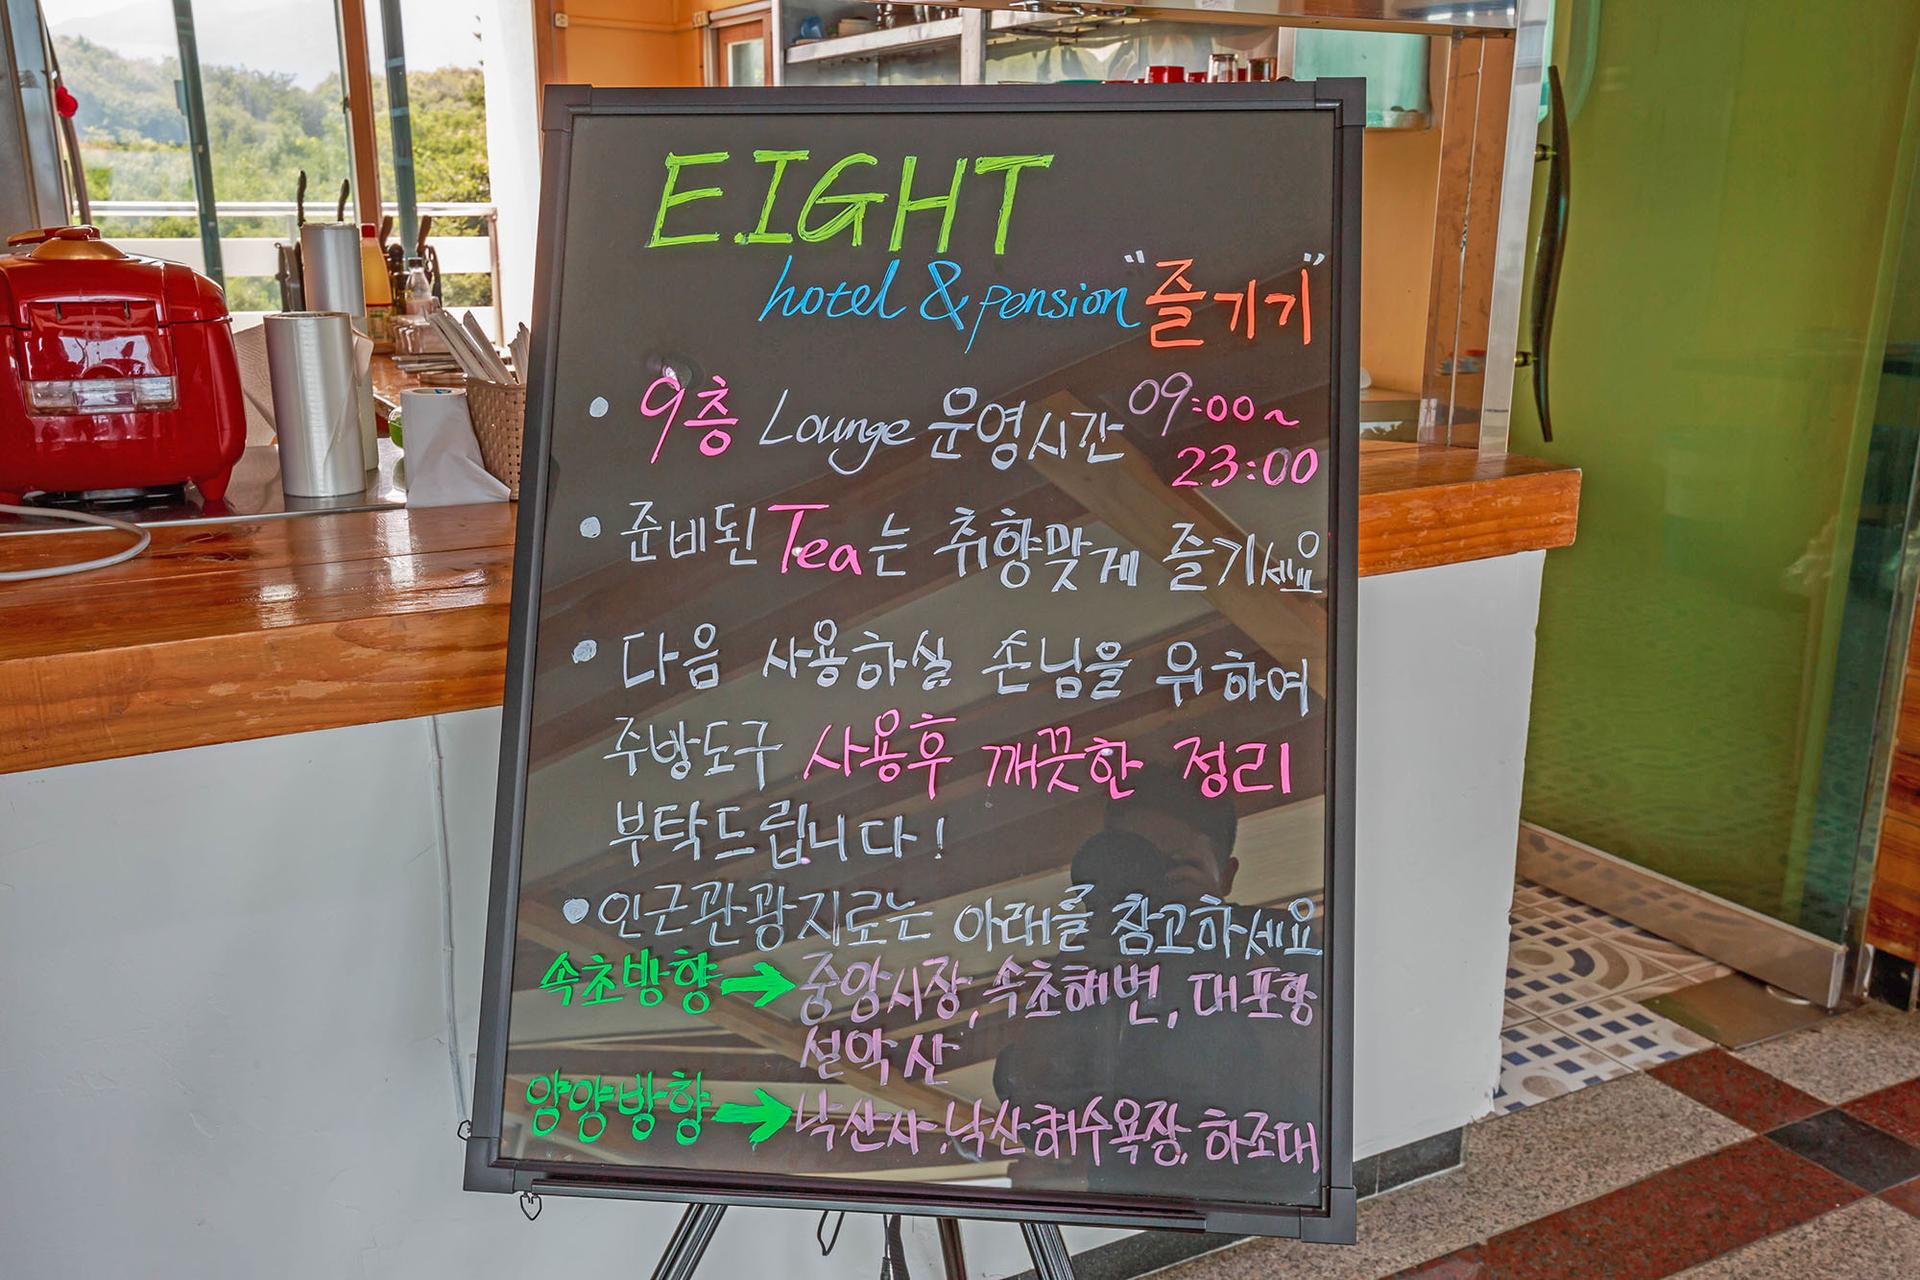 EIGHT
hotel & pension "즐기기"
• 9층 Lounge 운영시간 09:00~
23:00
• 준비된 Tea는 취향맞게 즐기세요
• 다음 사용하실 손님을 위하여
주방도구 사용후 깨끗한 정리
부탁드립니다!
• 인근관광지로는 아래를 참고하세요
속초방향→중앙시장, 속초해변, 대포항
설악산
양양방향→낙산사, 낙산해수욕장, 하조대